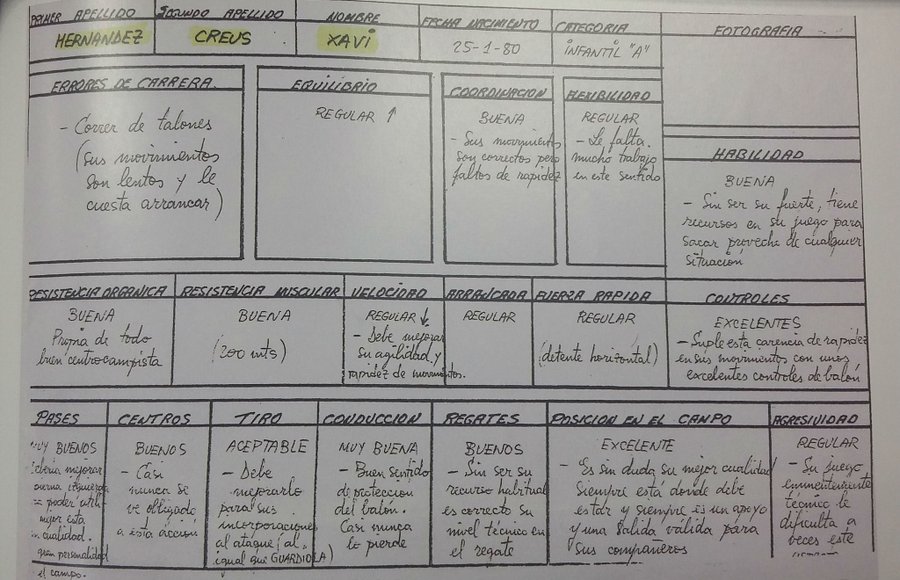 PRIMER APELLIDO
HERNANDEZ
SEGUNDO APELLIDO
CREUS
NOMBRE
XAVI
FECHA NACIMIENTO
25-1-80
CATEGORIA
INFANTIL "A"
FOTOGRAFIA
ERRORES DE CARRERA.
- Correr de talones
(sus movimientos
son lentos y le
cuesta arrancar)
EQUILIBRIO
REGULAR ↑
COORDINACION
BUENA
- Sus movimientos
son correctos pero
faltos de rapidez
FLEXIBILIDAD
REGULAR
- Le falta
mucho trabajo
en este sentido
HABILIDAD
BUENA
- Sin ser su fuerte, tiene
recursos en su juego para
sacar provecho de cualquier
situación
RESISTENCIA ORGANICA
BUENA
Propia de todo
buen centrocampista
RESISTENCIA MUSCULAR
BUENA
(200 mts)
VELOCIDAD
REGULAR ↓
- Debe mejorar
su agilidad y
rapidez de movimientos.
ARRANCADA
REGULAR
FUERZA RAPIDA
REGULAR
(detente horizontal)
CONTROLES
EXCELENTES
- Suple esta carencia de rapidez
en sus movimientos con unos
excelentes controles de balón
PASES
MUY BUENOS
debería mejorar
pierna izquierda
poder
mejor esta
cualidad.
personalidad
el campo.
CENTROS
BUENOS
- Casi
nunca se
ve obligado
a esta acción
TIRO
ACEPTABLE
- Debe
mejorarlo
para sus
incorporaciones
al ataque (al
igual que GUARDIOLA)
CONDUCCION
MUY BUENA
- Buen sentido
de protección
del balón.
Casi nunca
lo pierde
REGATES
BUENOS
- Sin ser su
recurso habitual
es correcto su
nivel técnico en
el regate
POSICION EN EL CAMPO
EXCELENTE
- Es sin duda su mejor cualidad
Siempre está donde debe
estar y siempre es un apoyo
y una salida válida para
sus compañeros
AGRESIVIDAD
REGULAR
- Su juego
eminentemente
técnico le
dificulta a
veces este